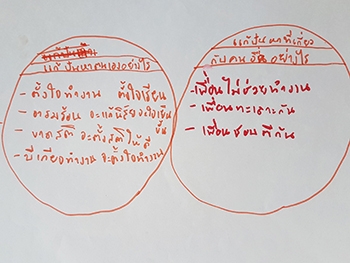 แก้ปัญหาตนเองอย่างไร
- ตั้งใจทำงาน ตั้งใจเรียน
- อารมร้อน จะแก้นิสัยใจเย็น
ขึ้น
- ขาดสติ จะตั้งสติให้ดี
- ขี้เกียจทำงาน จะตั้งใจทำงาน
แก้ปัญหาที่เกี่ยว
กับคนอื่นอย่างไร
- เพื่อนไม่ช่วยทำงาน
- เพื่อนทะเลาะกัน
- เพื่อนชอบตีกัน